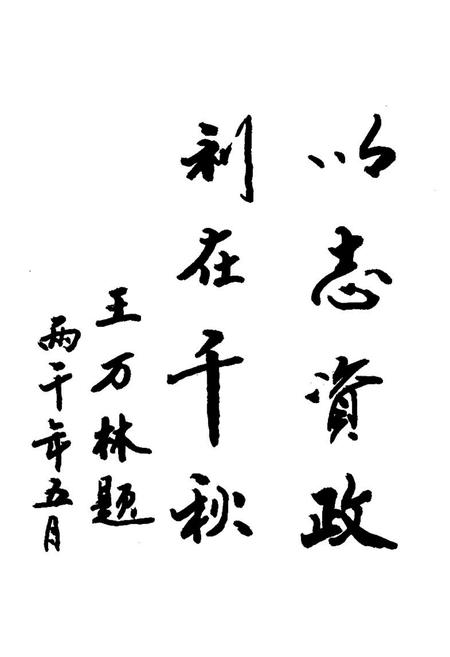 以志資政
利在千秋
王万林题
两千年五月